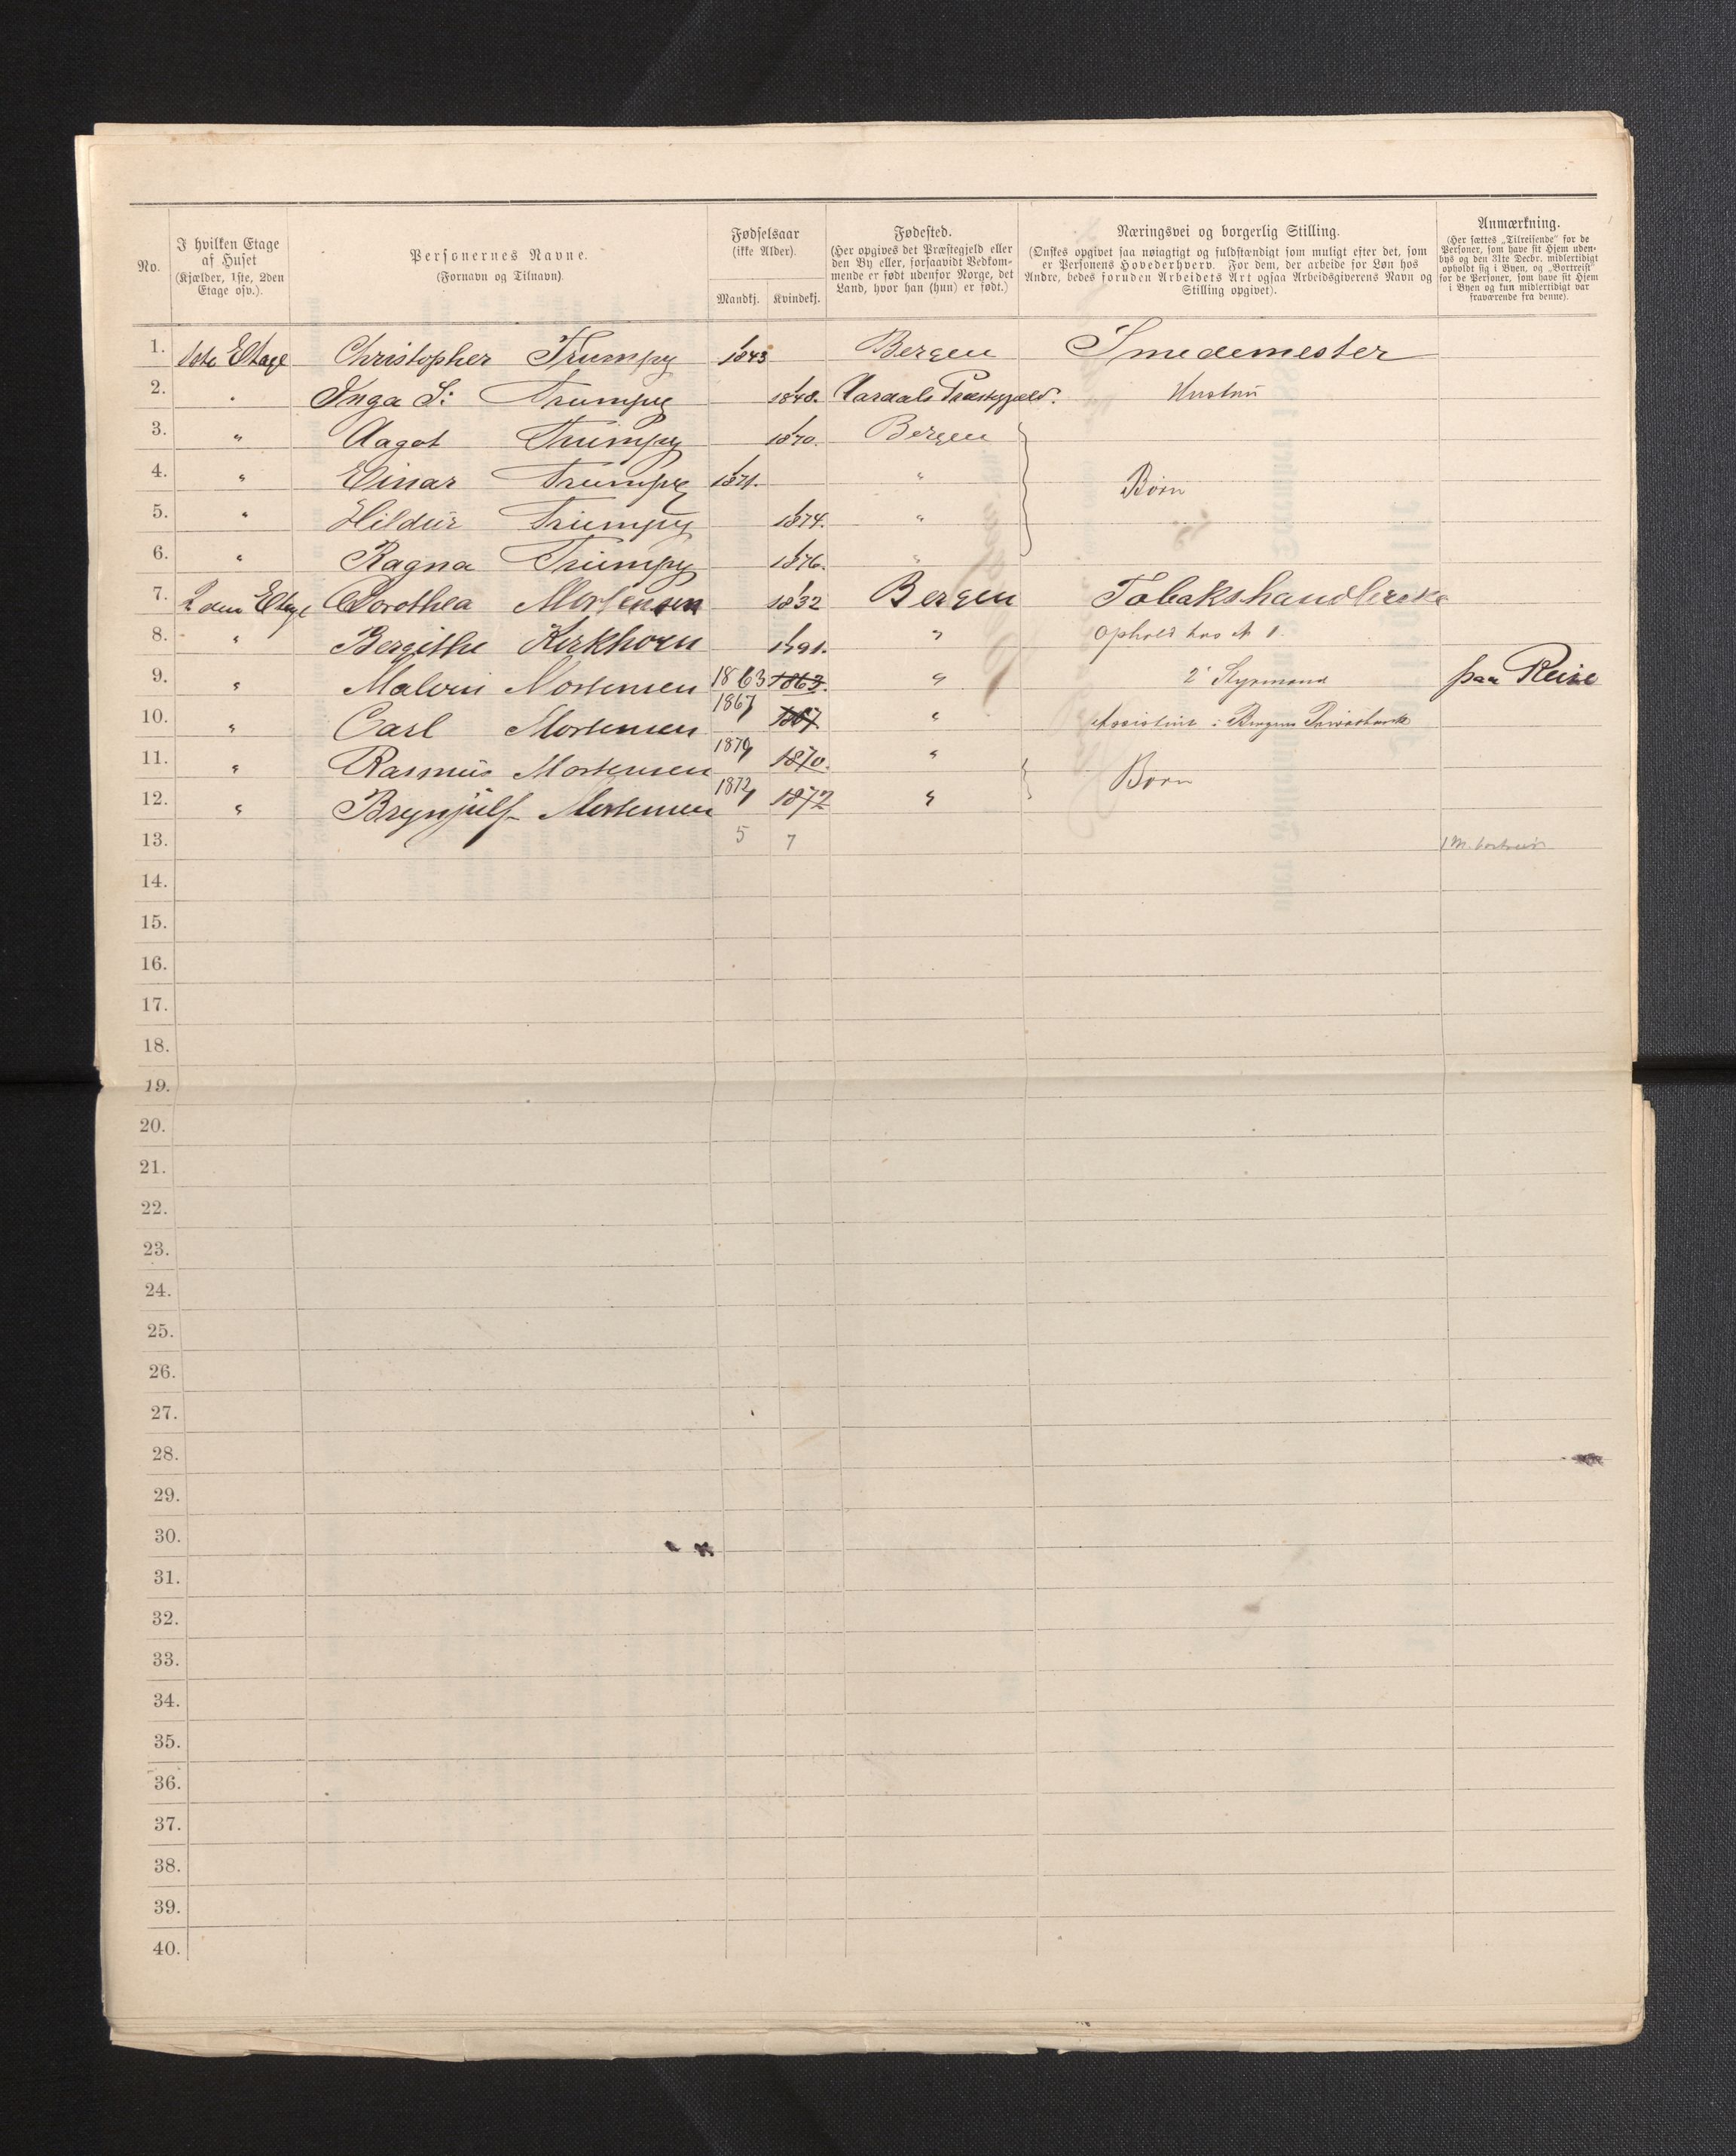 No.
I hvilken Etage
af Huset
(Kjælder, 1ste, 2den
Etage osv.).
Personernes Navne.
(Fornavn og Tilnavn).
Fødselsaar
(ikke Alder).
Mandkj.
Kvindekj.
Fødested.
(Her opgives det Præstegjeld eller
den By eller, forsaavidt Vedkom-
mende er født udenfor Norge, det
Land, hvor han (hun) er født.)
Næringsvei og borgerlig Stilling.
(Ønskes opgivet saa nøiagtigt og fuldstændigt som muligt efter det, som
er Personens Hovederhverv. For dem, der arbeide for Løn hos
Andre, bedes foruden Arbeidets Art ogsaa Arbeidsgiverens Navn og
Stilling opgivet).
Anmærkning.
(Her sættes „Tilreisende“ for de
Personer, som have sit Hjem uden-
bys og den 31te Decbr. midlertidigt
opholdt sig i Byen, og „Bortreist“
for de Personer, som have sit Hjem
i Byen og kun midlertidigt var
fraværende fra denne).
1. 1ste Etage Christopher Trumpy 1843 Bergen Smedemester
2. " Inga S: Trumpy 1848. Aardals Præstegjeld. Hustru
3. " Aagot Trumpy 1870. Bergen
4. " Einar Trumpy 1871. " Børn
5. " Hildur Trumpy 1874. "
6. " Ragna Trumpy 1876. "
7. 2den Etage Dorothea Mortensen 1832 Bergen Tobakshandlerske
8. " Bergithe Kirkhorn 1791. " Ophold hos № 1.
9. " Malvin Mortensen 1863 1863. " 2' Styrmand paa Reise
10. " Carl Mortensen 1867 1867. " Assistent i Bergens Privatbank
11. " Rasmus Mortensen 1870 1870. " Børn
12. " Brynjulf Mortensen 1872 1872 "
13. 5 7 1 m.
14.
15.
16.
17.
18.
19.
20.
21.
22.
23.
24.
25.
26.
27.
28.
29.
30.
31.
32.
33.
34.
35.
36.
37.
38.
39.
40.